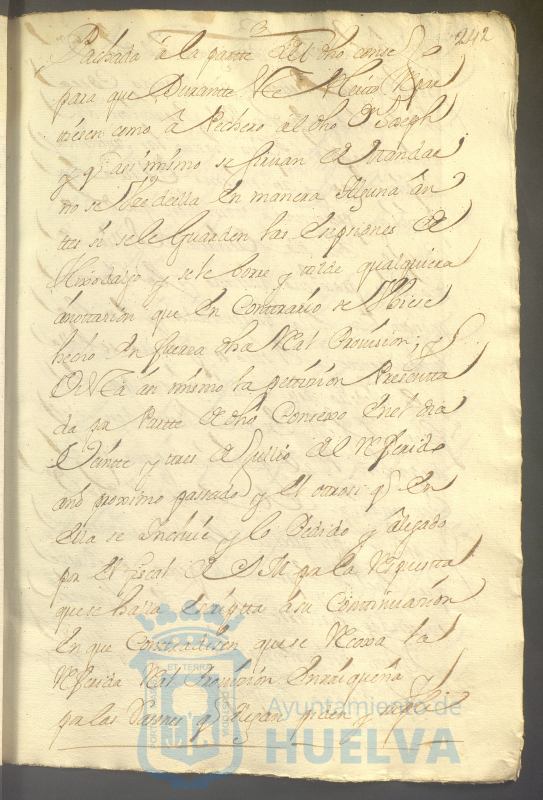 242
pachada à la parte del dho conse
para que Durante
tiesen como à Pechero al dho Dn Joseph
y qe asi mismo se sirvan de mandar
no se obedesca en manera alguna an
tes si se le Guarden las esempsiones de
Hixodalgo y se le borre y tilde qualquiera
anottacion que en Contrario se Ubiese
hecho en fuerza dha Real Provision; y
Vista asi mismo la pettizion Presentta
da por Partte de dho Consexo en el dia
Veinte y tres de Jullio del referido
año proximo passado y el otrosi qe en
ella se Incluie y lo Pedido y alegado
por el fiscal de S M en la Respuestta
que se halla escriptta à su Continuazion
en que Contradisen que se recoxa la
referida Real Provision
por las rasones qe dejan
ET TERRÆ
Ayuntamiento de
HUELVA